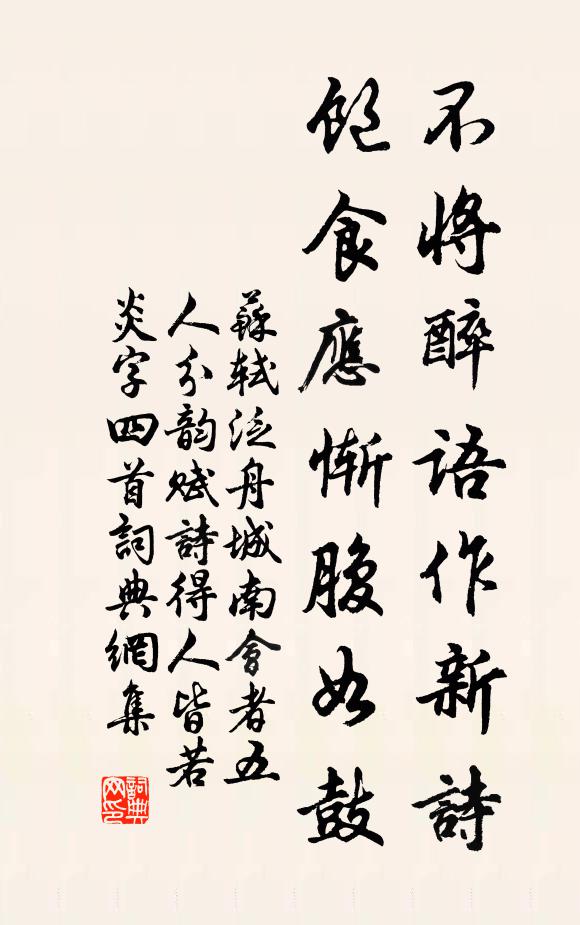 不將醉語作新詩
飽食應慚腹如鼓
蘇軾泛舟城南會者五
人分韵賦詩得人皆若
炎字四首詞典網集
詞典網印